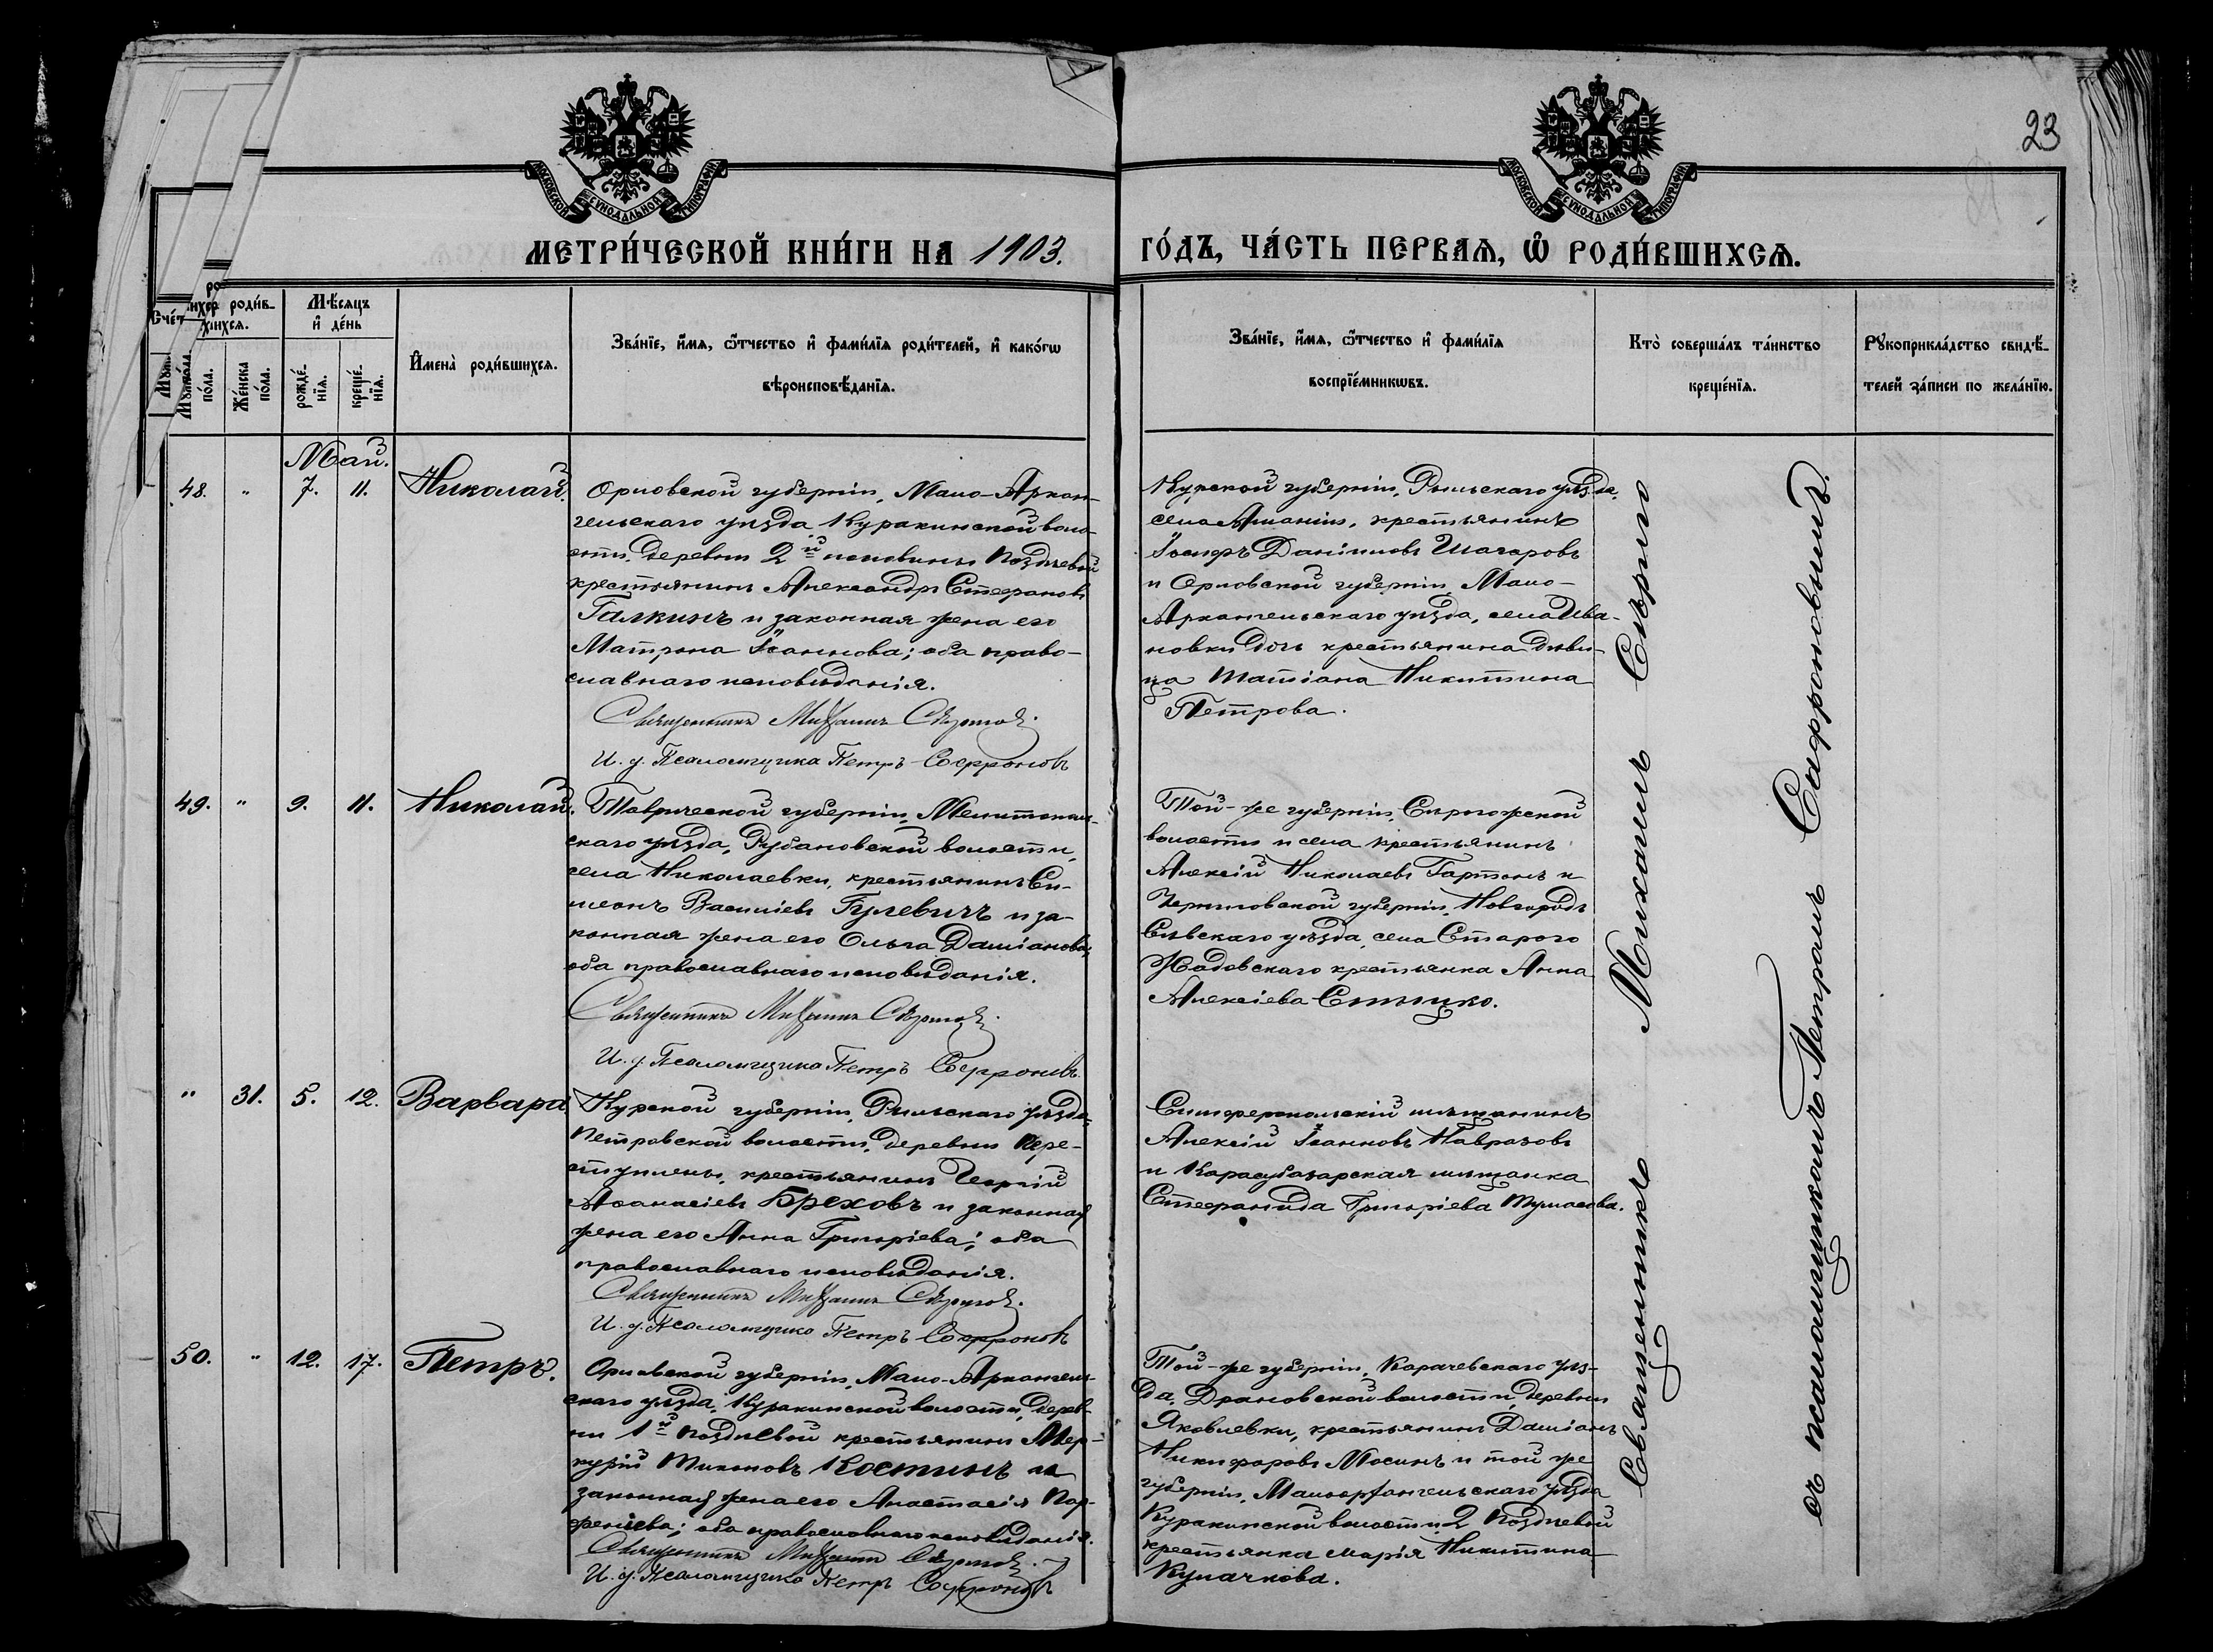 23
МОСКОВСКОЙ СѴНОДАЛЬНОЙ ТИПОГРАФІИ
МОСКОВСКОЙ СѴНОДАЛЬНОЙ ТИПОГРАФІИ
МЕТРИ́ЧЕСКОЙ КНИ́ГИ НА 1903.
ГО́ДЪ, ЧА́СТЬ ПЕРВАѦ, Ѽ РОДИ́ВШИХСѦ.
Сче́т роди́в-
шихсѧ.
Мꙋ́жеска по́ла.
Же́нска по́ла.
Мѣ́сѧцъ и҆ де́нь
рожде́-нїѧ.
креще́-нїѧ.
И҆мена̀ роди́вшихсѧ.
Зва́нїе, и҆́мѧ, ѻ҆́тчество и҆ фами́лїѧ роди́телей, и҆ како́гѡ
вѣроисповѣ́данїѧ.
Зва́нїе, и҆́мѧ, ѻ҆́тчество и҆ фами́лїѧ
воспрїе́мникѡвъ.
Кто̀ соверша́лъ та́инство
креще́нїѧ.
Рꙋкоприкла́дство свидѣ́-
телей за́писи по жела́нїю.
Май.
48. " 7. 11. Николай.
Орловской губерніи, Мало-Архан-
гельскаго уѣзда Куракинской воло-
сти, деревни 2й половины Поздѣевой
крестьянинъ Александръ Стефановъ
Галкинъ и законная жена его
Матрона Іоаннова; оба право-
славнаго исповѣданія.
Священникъ Михаилъ
И. д. Псаломщика Петръ Софроновъ
Курской губерніи, Рыльскаго уѣзда,
села крестьянинъ
Іосифъ Даніиловъ
и Орловской губерніи, Мало-
Архангельскаго уѣзда, села Ива-
новки дочь крестьянина дѣви-
ца Татіана Никитина
Петрова.
49. " 9. 11. Николай.
Таврической губерніи, Мелитополь-
скаго уѣзда, Рубановской волости,
села Николаевки, крестьянинъ Си-
меонъ Васильевъ Гулевичъ и за-
конная жена его Ольга Даміанова;
оба православнаго исповѣданія.
Священникъ Михаилъ
И. д. Псаломщика Петръ Софроновъ.
Той-же губерніи, Сирогожской
волости и села крестьянинъ
Алексій Николаевъ и
Черниговской губерніи, Новгородъ
Сѣвскаго уѣзда, села Стараго
крестьянка Анна
Алексіева
" 31. 5. 12. Варвара
Курской губерніи, Рыльскаго уѣзда,
Петровской волости, деревни Пере-
ступлены, крестьянинъ Георгій
Аѳанасіевъ Бреховъ и законная
жена его Анна Григоріева; оба
православнаго исповѣданія.
Священникъ Михаилъ
И. д. Псаломщика Петръ Софроновъ
Симферопольскій мѣщанинъ
Алексій Іоанновъ
и Карасубазарская мѣщанка
Стефанида Григоріева
50. " 12. 17. Петръ.
Орловской губерніи, Мало-Архангель-
скаго уѣзда, Куракинской волости, дерев-
ни 1й Поздѣевой крестьянинъ Мер-
курій Тихоновъ Костинъ и
законная жена его Анастасія Пар-
феніева; оба православнаго исповѣданія.
Священникъ Михаилъ
И. д. Псаломщика Петръ Софроновъ
Той-же губерніи, Карачевскаго уѣз-
да, Драновской волости, деревни
Яковлевки, крестьянинъ Даміанъ
Никифоровъ Мосинъ и той же
губерніи, Малоархангельскаго уѣзда
Куракинской волости, 2 Поздѣевой
крестьянка Марія Никитина
Кулачкова.
Священникъ Михаилъ
съ псаломщикомъ Петромъ Софроновымъ.